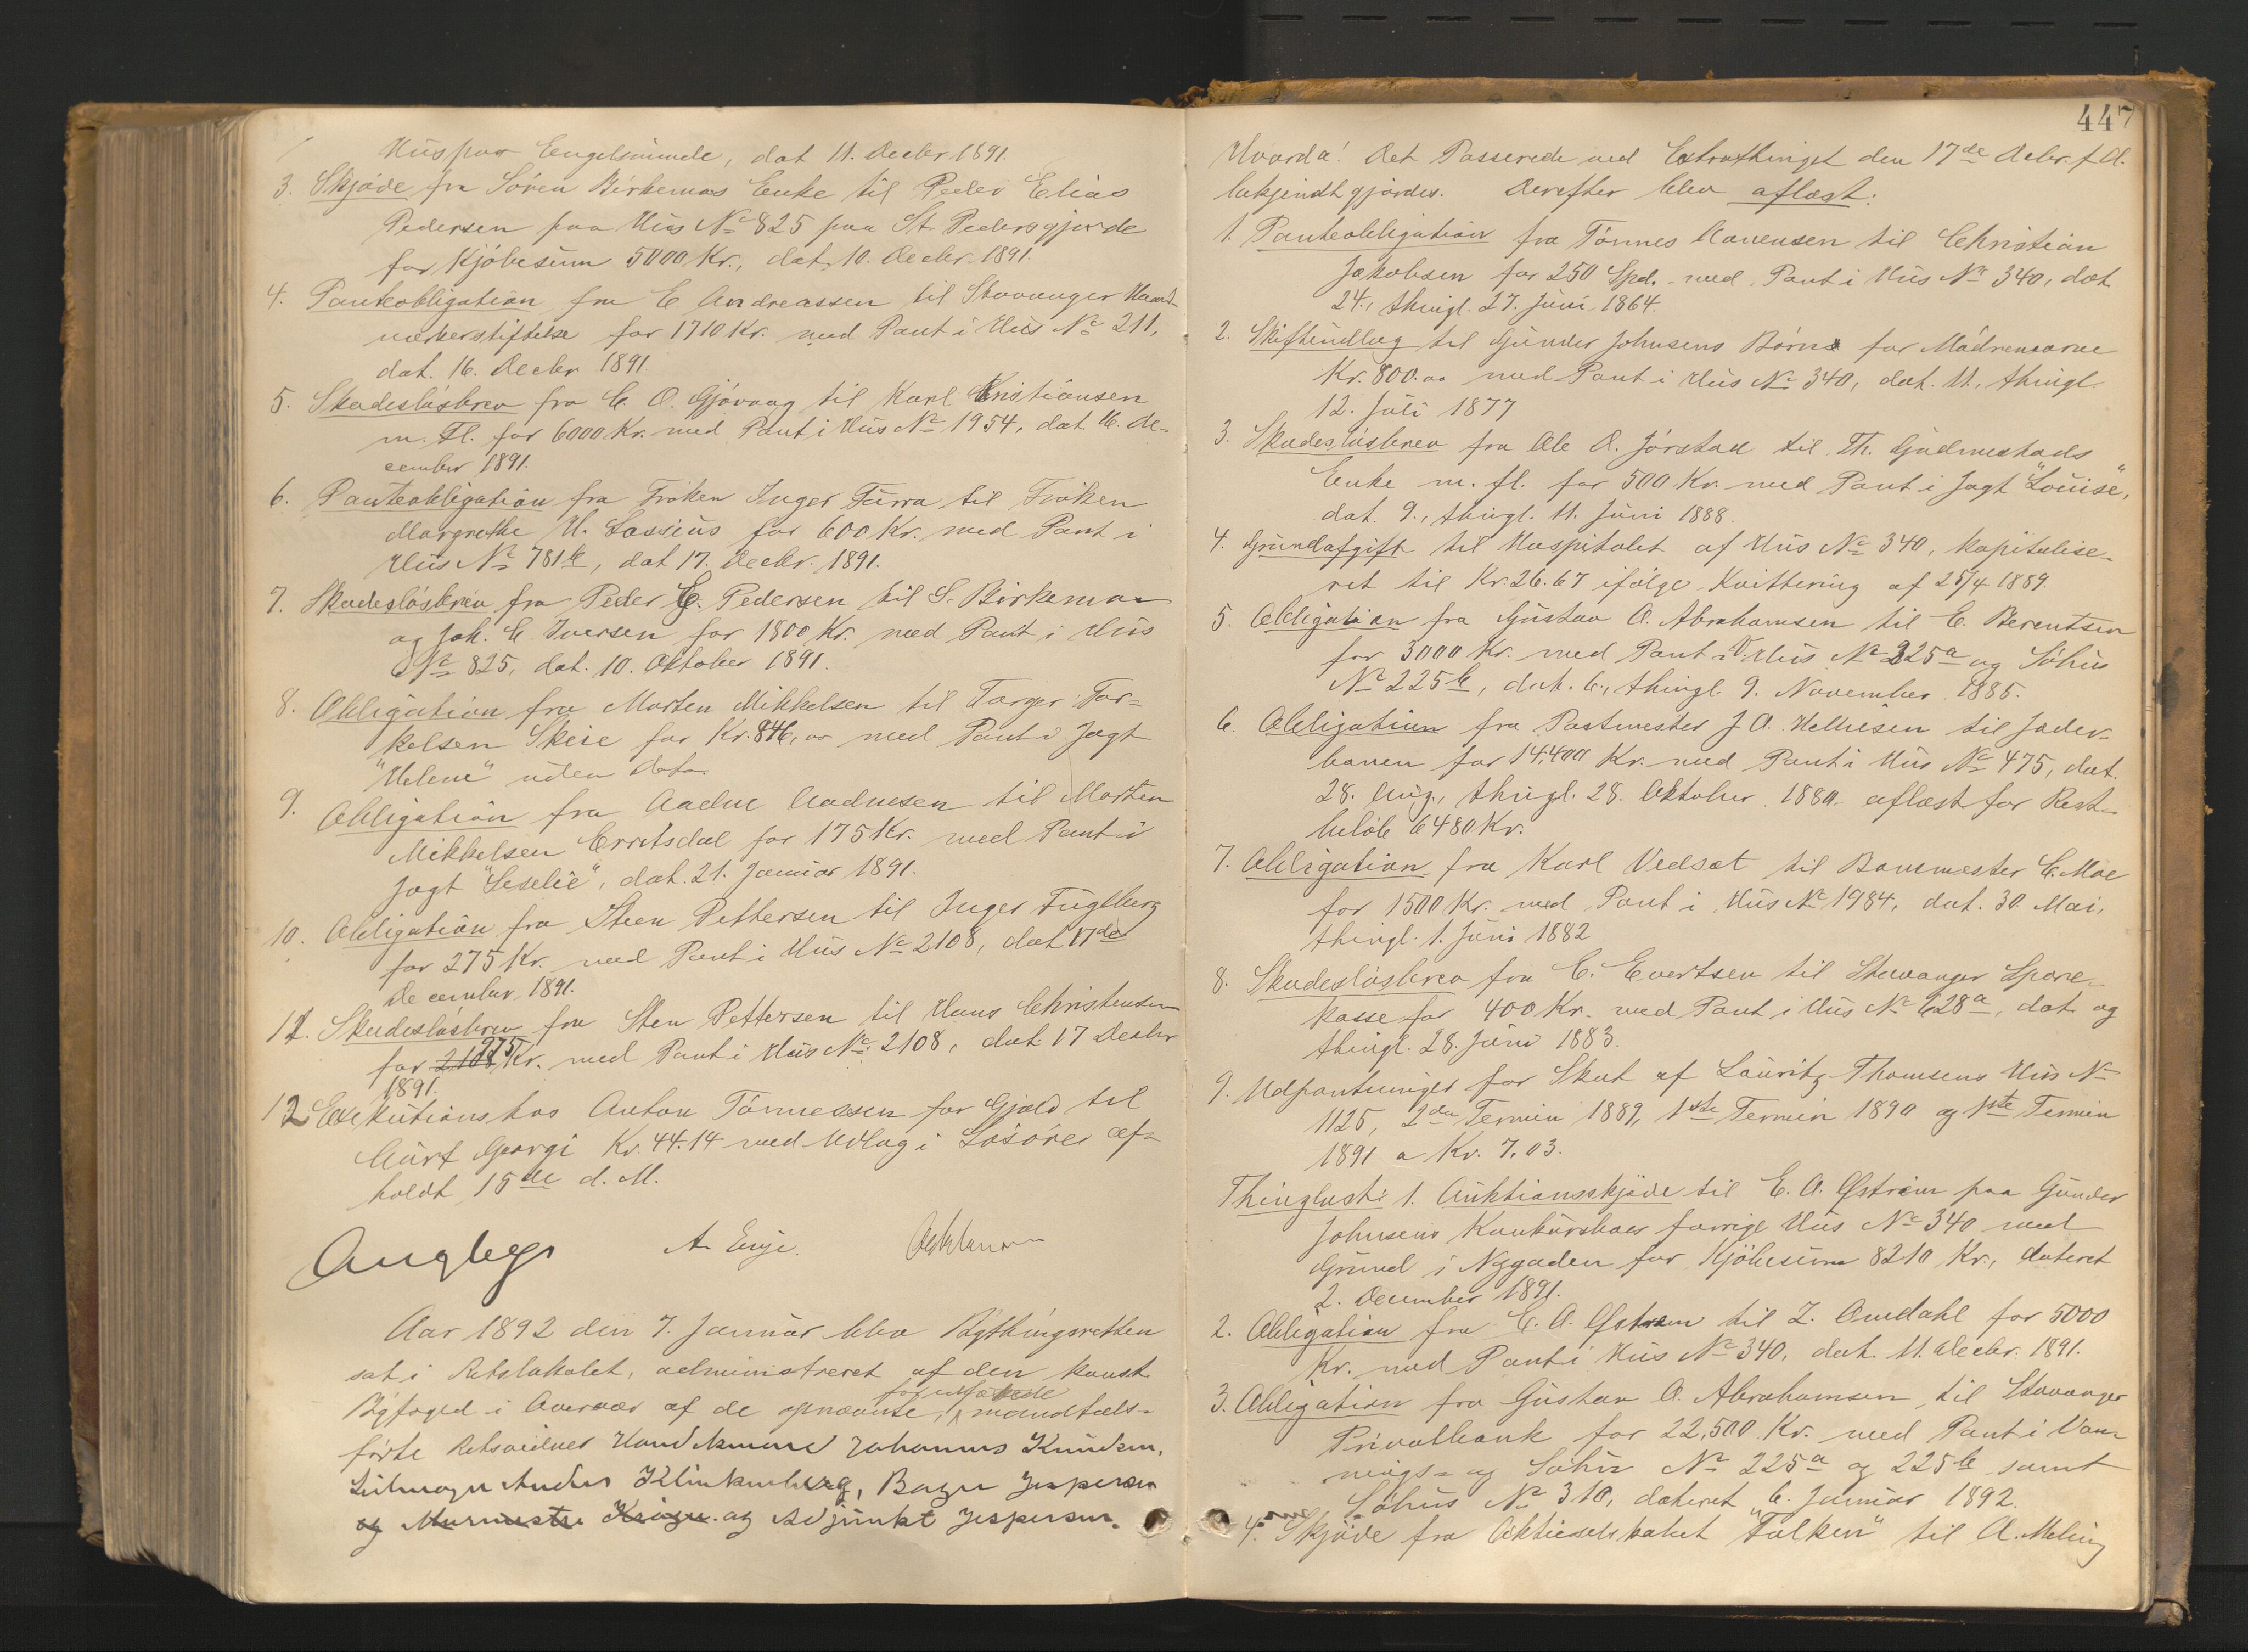 Huspar Engelsminde, dat 11. Decbr 1891.
3. Skjøde fra Sören Birkemos Enke til Peder Elias
Pedersen paa Hus No 825 paa St. Pedersgjerde
for Kjöbesum 5000 Kr., dat. 10. Decbr. 1891.
4. Panteobligation fra E Andreassen til Stavanger Haand-
værkerstiftelse for 1710 Kr. med Pant i Hus No 211,
dat. 16. Decbr 1891.
5. Skadeslösbrev fra C. O. Gjövaag til Karl Kristiansen
m. Fl. for 6000 Kr. med Pant i Hus No 1954, dat 16. De-
cember 1891.
6. Panteobligation fra Fröken Inger Furra til Fröken
Margrethe H. Lassius for 600 Kr. med Pant i
Hus No 781b, dat 17. Decbr. 1891.
7. Skadeslösbrev fra Peder E. Pedersen til S. Birkemoe
og Joh. C. Iversen for 1800 Kr. med Pant i Hus
No 825, dat. 10. Oktober 1891.
8. Obligation fra Morten Mikkelsen til Torger Tor-
kelsen Skeie for Kr. 846, oo med Pant i Jagt
"Helene" uden Dato.
9. Obligation fra Aadne Aadnesen til Morten
Mikkelsen Erretsdal for 175 Kr. med Pant i
Jagt "Leselie", dat. 21. Januar 1891.
10. Obligation fra Steen Pettersen til Inger Fuglberg
for 275 Kr. med Pant i Hus No 2108, dat 17de
December 1891.
11. Skadeslösbrev fra Sten Pettersen til Hans Christensen
for 2108 275 Kr. med Pant i Hus No 2108, dat 17 Decbr
1891.
12 Exekution hos Anton Tönnessen for Gjæld til
Curt Georgi Kr. 44.14 med Udlæg i Lösöre af-
holdt 15de d. M.
A. Enje.
Aar 1892 den 7. Januar blev Bythingsretten
sat i Retslokalet, administreret af den konst.
Byfoged i Overvær af de opnævnte, forudfaldede mandtals-
förte Retsvidner Handelsmand Johannes Knudsen,
Anders Klinkenberg, Bager Jespersen
og Murmester Kröger og Adjunkt Jespersen.
447
Hvorda! Det Passerede ved Extrathinget den 17de Decbr. f. A.
bekjendtgjordes. Derefter blev aflæst:
1. Panteobligation fra Tönnes Aanensen til Christian
Jakobsen for 250 Spd. med Pant i Hus No 340, dat.
24., thingl. 27. Juni 1864.
2. Skifteudlæg til Gunder Johnsens Börn for Mödrenearv
Kr. 800.oo med Pant i Hus No 340, dat. 11., thingl.
12. Juli 1877
3. Skadeslösbrev fra Ole O. Jörstad til Th. Gudmestads
Enke m. fl. for 500 Kr. med Pant i Jagt "Louise",
dat. 9., thingl. 11. Juni 1888.
4. Grundafgift til Hospitalet af Hus No 340, kapitalise-
ret til Kr. 26.67 ifölge Kvittering af 25/4 1889.
5. Obligation fra Gustav A. Abrahamsen til C. Berentsen
for 3000 Kr. med Pant i V. Hus No 225a og Söhus
No 225b, dat. 6., thingl. 9. November 1885.
6. Obligation fra Postmester J A. Helliesen til Jæder-
banen for 14,400 Kr. med Pant i Hus No 475, dat.
28. Aug., thingl. 28. Oktober 1880 aflæst for Rest-
belöb 6480 Kr.
7. Obligation fra Karl Vedsat til Banemester C. Moe
for 1500 Kr. med Pant i Hus No 1984, dat. 30. Mai,
thingl. 1. Juni 1882
8. Skadeslösbrev fra C. Evertsen til Stavanger Spare-
kasse for 400 Kr. med Pant i Hus No 628a, dat. og
thingl. 28. Juni 1883.
9. Udpantninger for Skat af Lauritz Thomsens Hus No
1125, 2den Termin 1889, 1ste Termin 1890 og 1ste Termin
1891 a Kr. 7.03.
Thinglæst: 1. Auktionsskjöde til E. A. Østrem paa Gunder
Johnsens Konkursboes forrige Hus No 340 med
Grund i Nygaden for Kjöbesum 8210 Kr., dateret
2. December 1891.
2. Obligation fra E. A. Østrem til Z. Omdahl for 5000
Kr. med Pant i Hus No 340, dat. 11. Decbr. 1891.
3. Obligation fra Gustav A. Abrahamsen til Stavanger
Privatbank for 22,500 Kr. med Pant i Vaa-
nings- og Söhus No 225a og 225b samt
Söhus No 310, dateret 6. Januar 1892.
4. Skjöde fra Aktieselskabet "Falken" til A. Meling